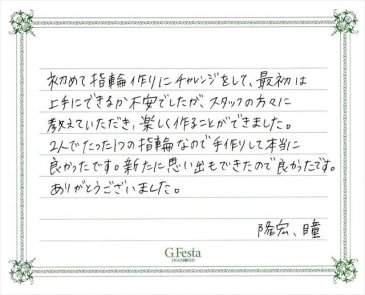 初めて指輪作りにチャレンジをして、最初は
上手にできるか不安でしたが、スタッフの方々に
教えていただき、楽しく作ることができました。
2人でたった1つの指輪なので手作りして本当に
良かったです。新たに思い出もできたので良かったです。
ありがとうございました。
隆宏、瞳
G.Festa
DIAMOND